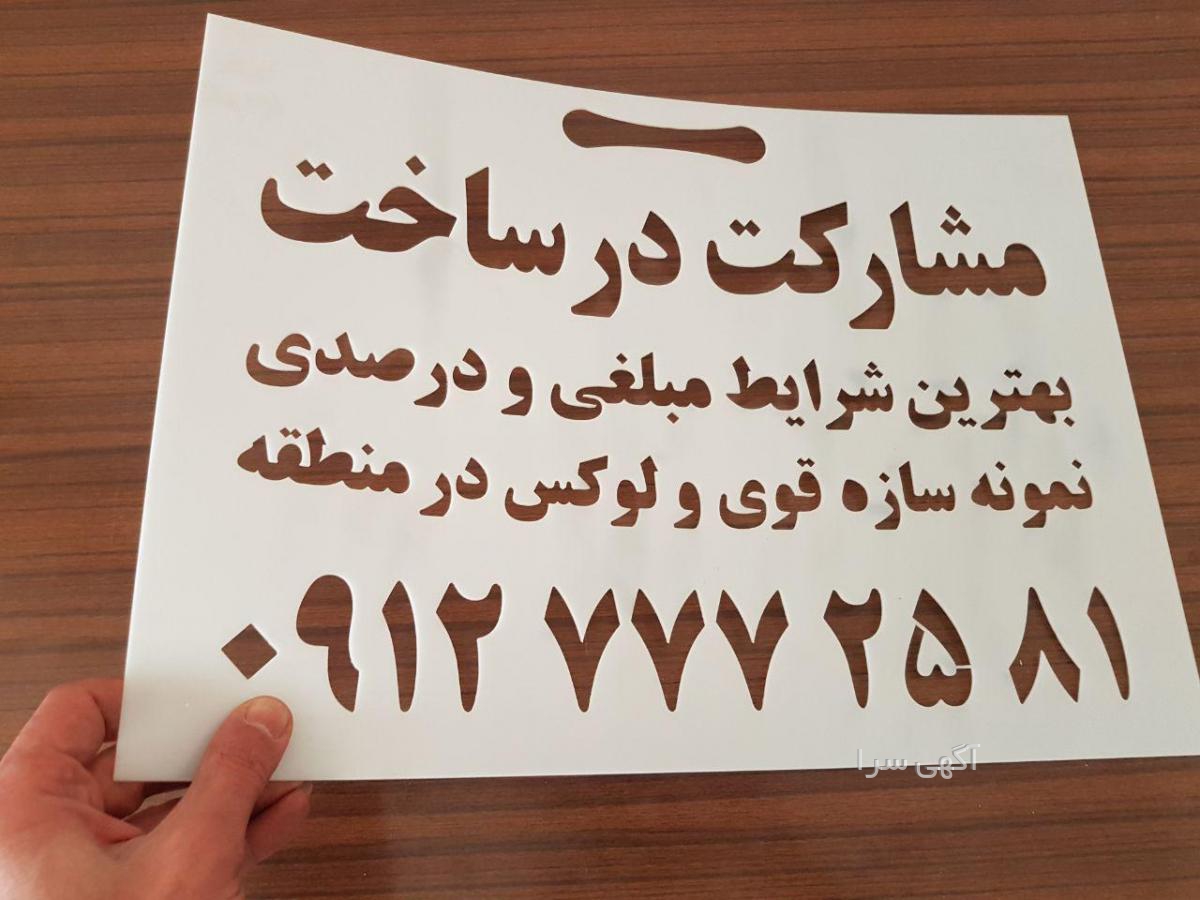 مشارکت در ساخت
بهترین شرایط مبلغی و درصدی
نمونه سازه قوی و لوکس در منطقه
۰۹۱۲ ۷۷۷ ۲۵ ۸۱
آگهی سرا